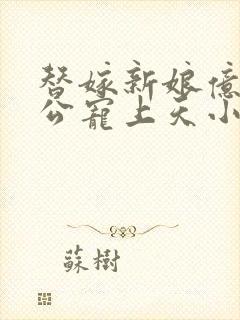 替嫁新娘億
公寵上天小
蘇樹